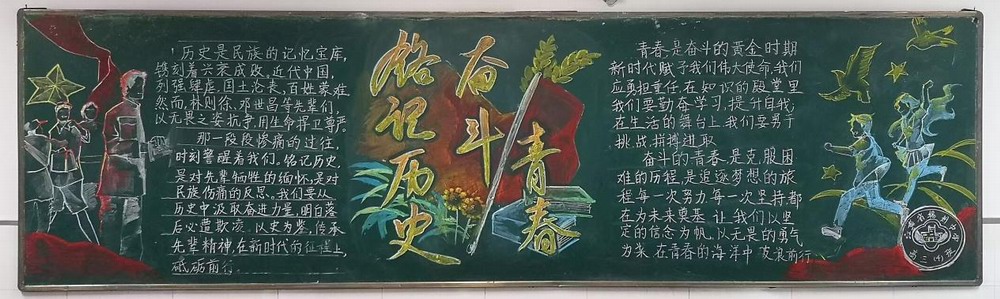 历史是民族的记忆宝库,
镌刻着兴衰成败。近代中国,
列强肆虐,国土沦丧,百姓蒙难
然而,林则徐、邓世昌等先辈们,
以无畏之姿抗争,用生命捍卫尊严。
那一段段惨痛的过往,
时刻警醒着我们。铭记历史,
是对先辈牺牲的缅怀,是对
民族伤痛的反思。我们要从
历史中汲取奋进力量,明白落
后必遭欺凌。以史为鉴,传承
先辈精神,在新时代的征程上,
砥砺前行
铭记历史
奋斗青春
青春是奋斗的黄金时期
新时代赋予我们伟大使命,我们
应勇担重任,在知识的殿堂里
我们要勤奋学习,提升自我;
在生活的舞台上,我们要勇于
挑战,拼搏进取
奋斗的青春,是克服困
难的历程,是追逐梦想的旅
程每一次努力,每一次坚持,都
在为未来奠基,让我们以坚
定的信念为帆,以无畏的勇气
为桨,在青春的海洋中
前行